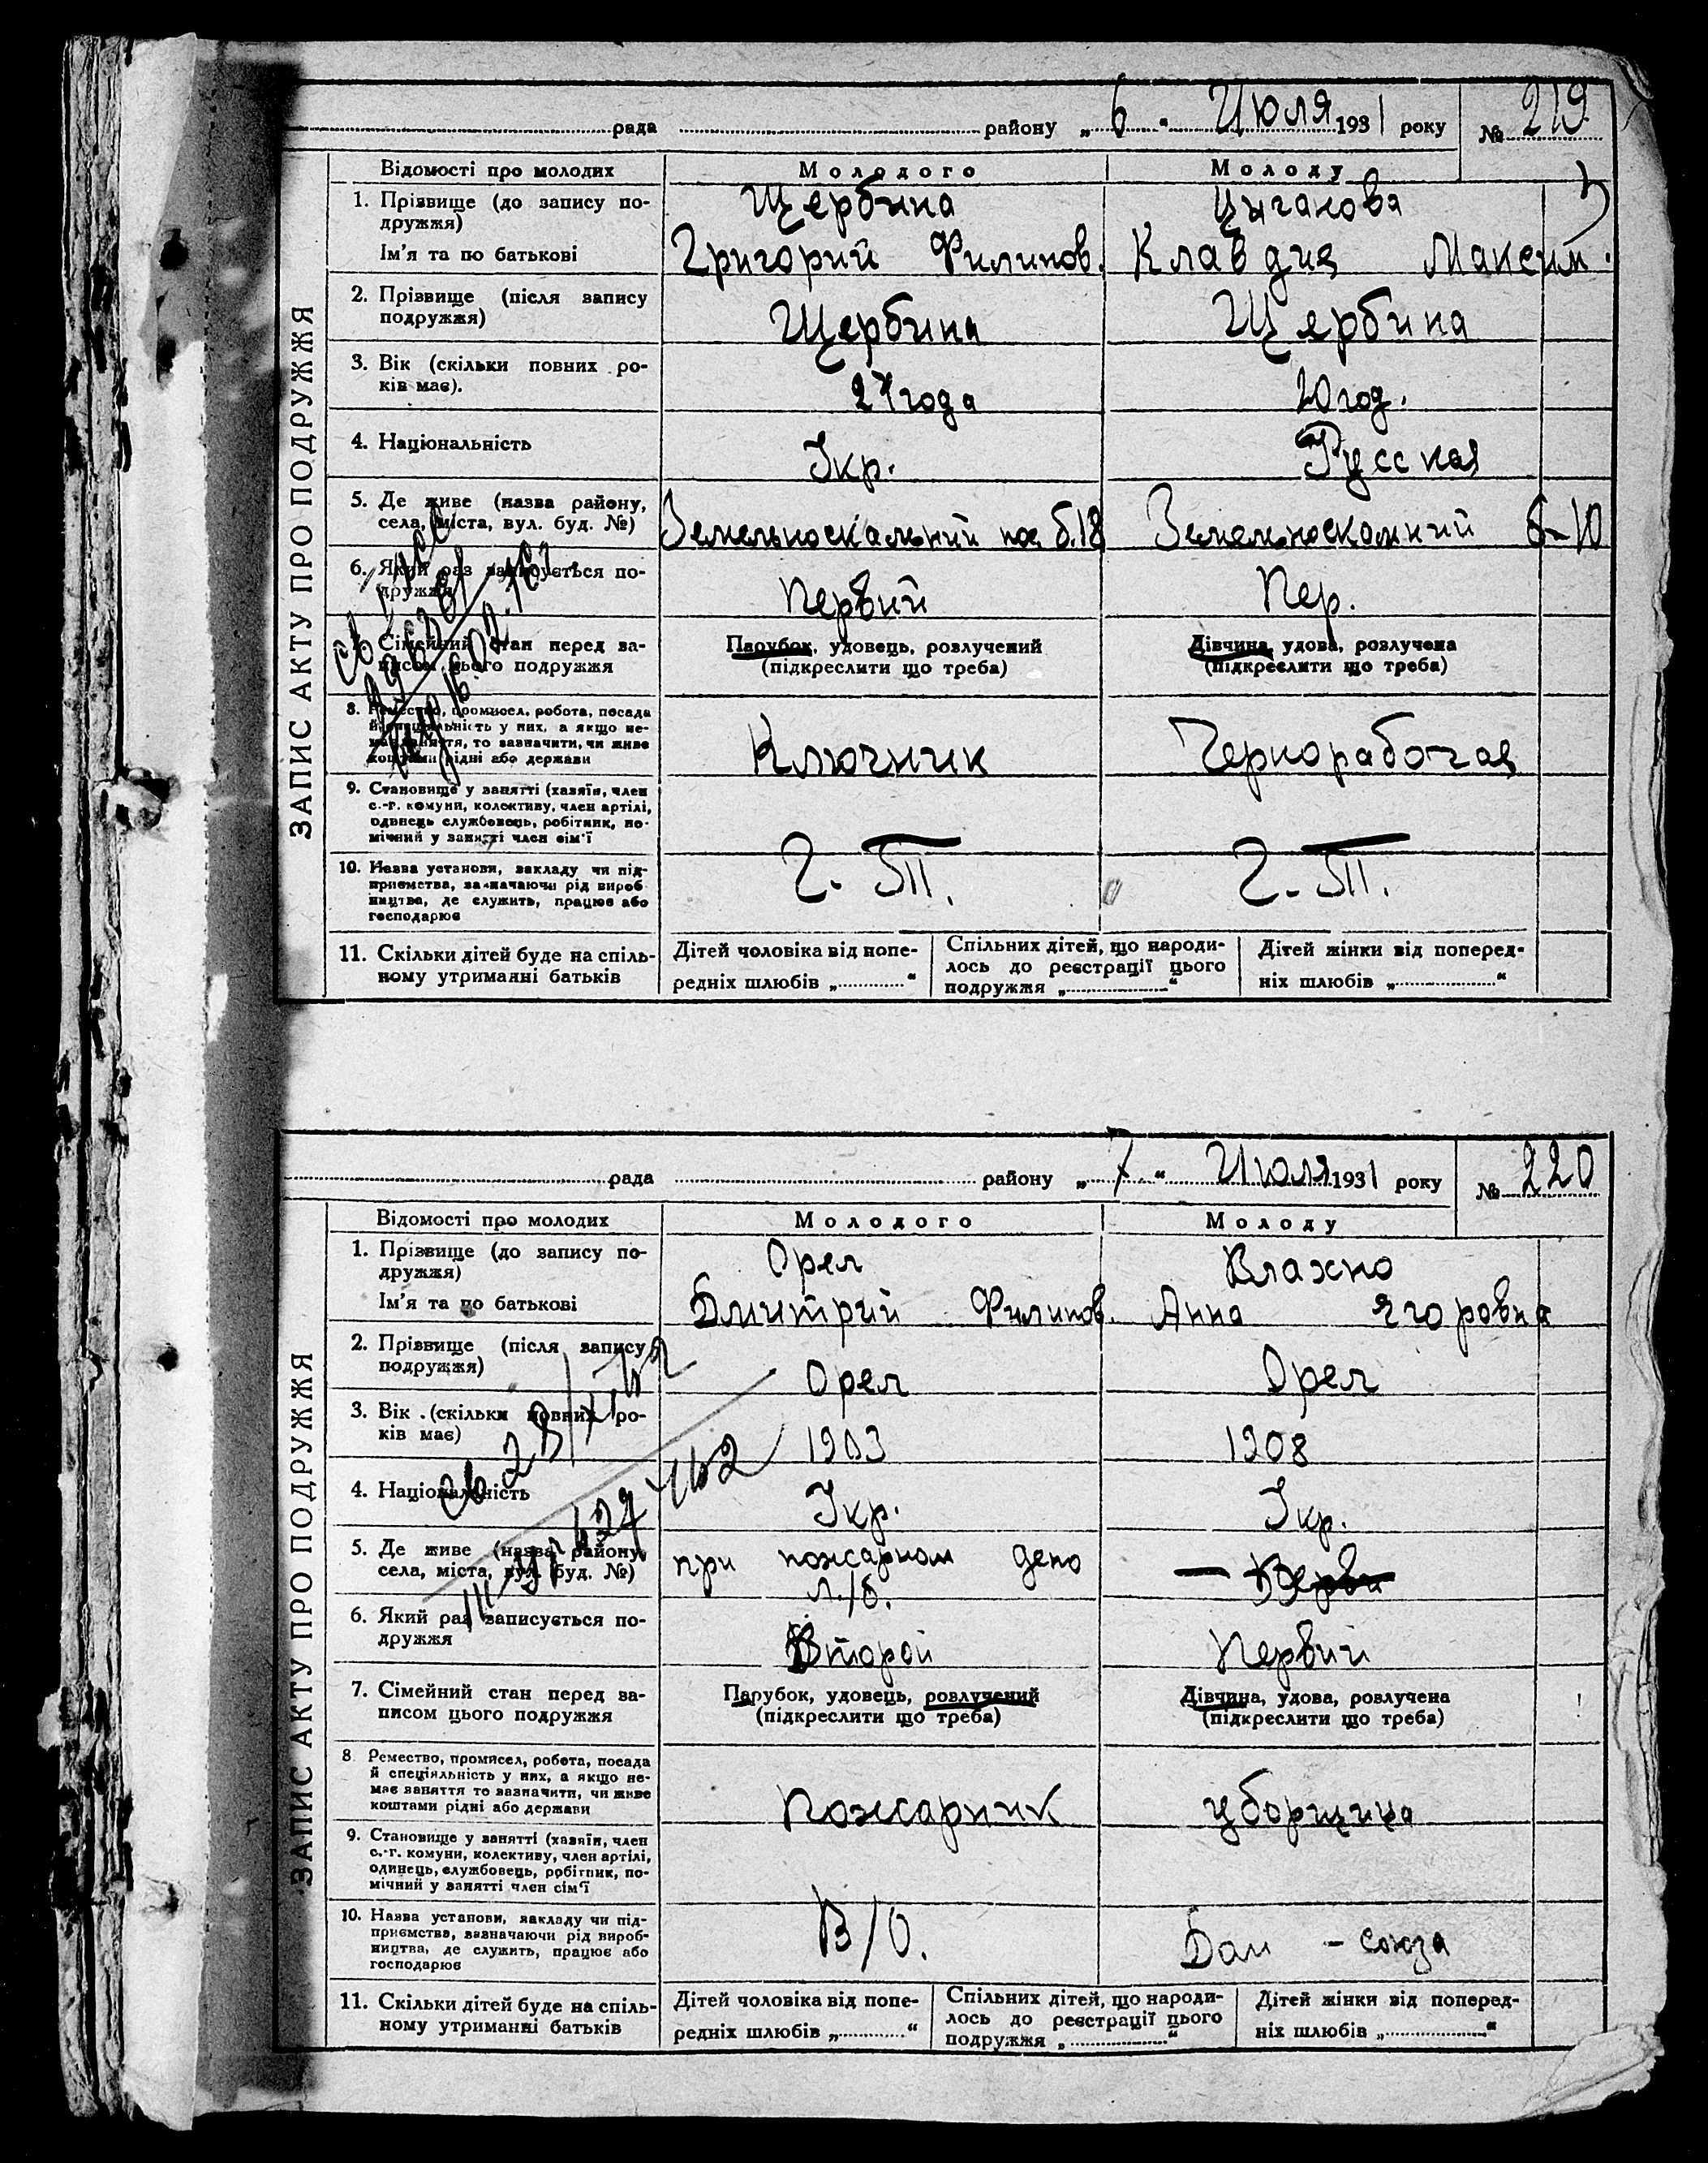 рада району „6“ Июля 1931 року № 219
ЗАПИС АКТУ ПРО ПОДРУЖЖЯ
Відомості про молодих Молодого Молоду
1. Прізвище (до запису по-
дружжя) Щербина Цыганова
Ім'я та по батькові Григорий Филипов. Клавдия Максим.
2. Прізвище (після запису
подружжя) Щербина Щербина
3. Вік (скільки повних ро-
ків має). 24 года 20 год.
4. Національність Укр. Русская
5. Де живе (назва району,
села, міста, вул. буд. №) пос. б.18 б-10
6. Який раз записується по-
дружжя Первий Пер.
7. Сімейний стан перед за-
писом цього подружжя
Парубок, удовець, розлучений
(підкреслити що треба)
Дівчина, удова, розлучена
(підкреслити що треба)
8. Ремество, промисел, робота, посада
й спеціяльність у них, а якщо не-
має заняття, то зазначити, чи живе
коштами рідні або держави Ключник Чернорабочая
9. Становище у занятті (хазяїн, член
с.-г. комуни, колективу, член артілі,
одинець службовець, робітник, по-
мічний у занятті член сім'ї
10. Назва установи, закладу чи під-
приємства, зазначаючи рід вироб-
ництва, де служить, працює або
господарює
11. Скільки дітей буде на спіль-
ному утриманні батьків
Дітей чоловіка від попе-
редніх шлюбів „ “
Спільних дітей, що народи-
лось до реєстрації цього
подружжя „ “
Дітей жінки від поперед-
ніх шлюбів „ “
рада району „7“ Июля 1931 року № 220
ЗАПИС АКТУ ПРО ПОДРУЖЖЯ
Відомості про молодих Молодого Молоду
1. Прізвище (до запису по-
дружжя) Орел Влахно
Ім'я та по батькові Дмитрий Филипов. Анна Ягоровна
2. Прізвище (після запису
подружжя) Орел Орел
3. Вік (скільки повних ро-
ків має) 1903 1908
4. Національність Укр. Укр.
5. Де живе (назва району,
села, міста, вул. буд. №) при пожарном депо —
6. Який раз записується по-
дружжя Второй Первий
7. Сімейний стан перед за-
писом цього подружжя
Парубок, удовець, розлучений
(підкреслити що треба)
Дівчина, удова, розлучена
(підкреслити що треба)
8 Ремество, промисел, робота, посада
й спеціяльність у них, а якщо не-
має заняття то зазначити, чи живе
коштами рідні або держави Пожарник уборщица
9. Становище у занятті (хазяїн, член
с.-г. комуни, колективу, член артілі,
одинець, службовець, робітник, по-
мічний у занятті член сім'ї
10. Назва установи, закладу чи під-
приємства, зазначаючи рід вироб-
ництва, де служить, працює або
господарює В/О. Дом - союза
11. Скільки дітей буде на спіль-
ному утриманні батьків
Дітей чоловіка від попе-
редніх шлюбів „ “
Спільних дітей, що народи-
лось до реєстрації цього
подружжя „ “
Дітей жінки від поперед-
ніх шлюбів „ “